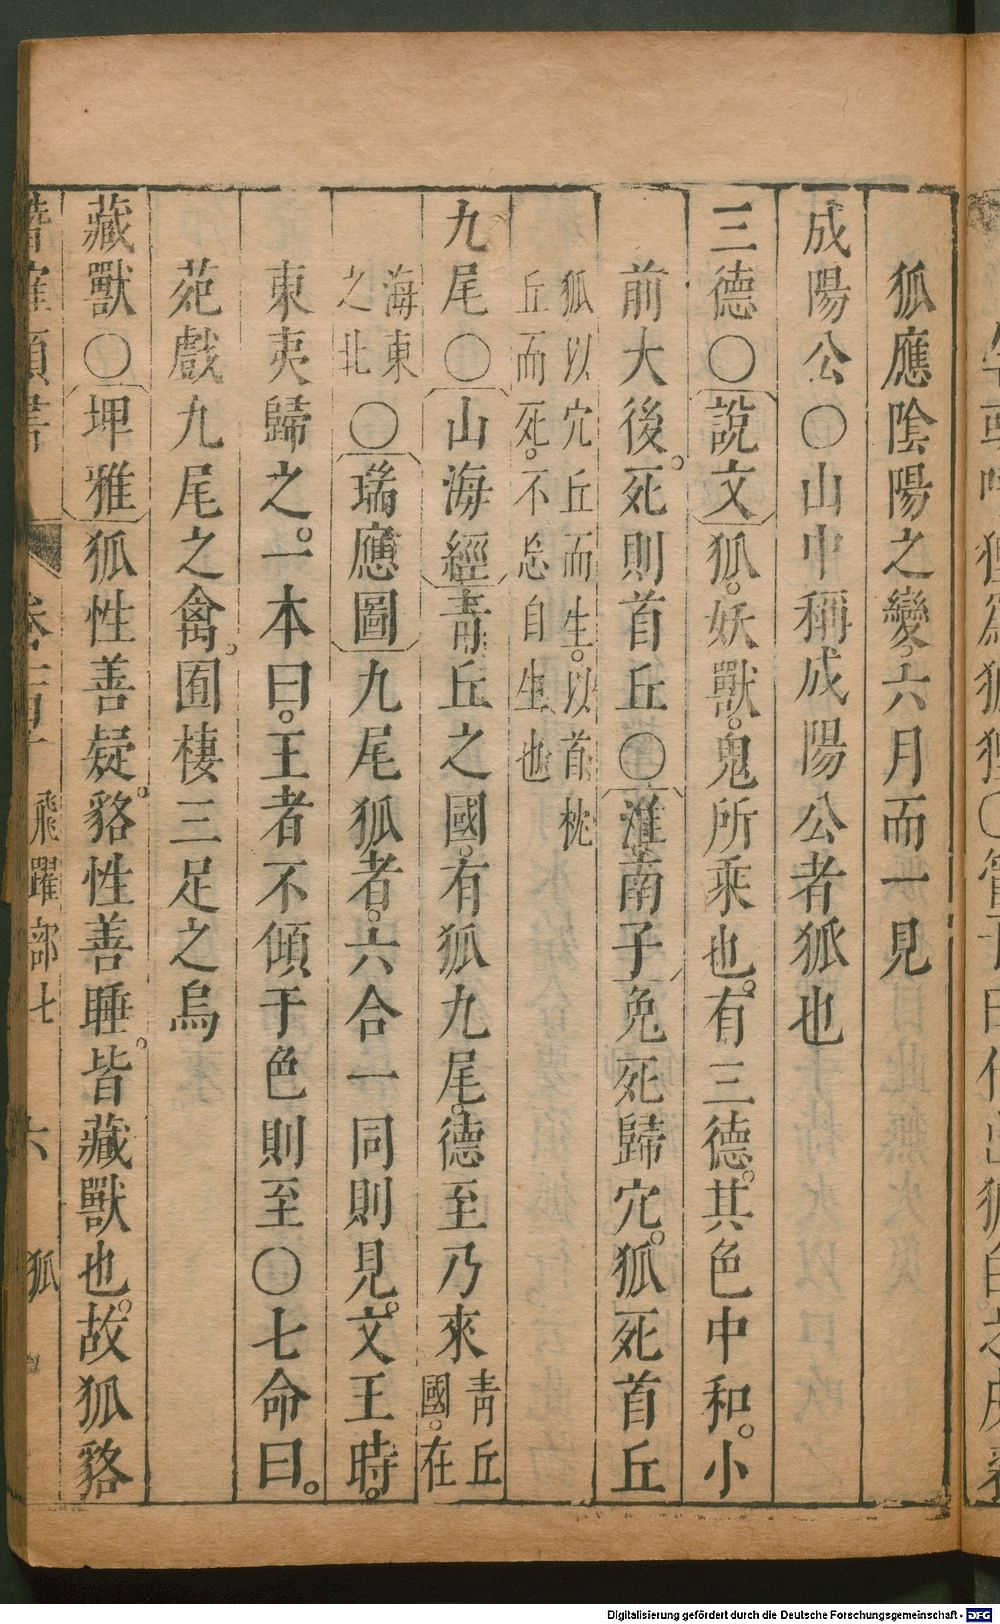 狐應陰陽之變。六月而一見
成陽公〇山中稱成陽公者狐也
三德〇說文狐。妖獸。鬼所乘也。有三德。其色中和。小
前大後。死則首丘〇淮南子兔死歸穴。狐死首丘
狐以穴丘而生。以首枕
丘而死。不忘自生也
九尾〇山海經青丘之國。有狐九尾。德至乃來青丘
國。在
海東
之北〇瑞應圖九尾狐者。六合一同則見。文王時。
東夷歸之。一本曰。王者不傾于色則至〇七命曰。
苑戲九尾之禽。囿棲三足之烏
藏獸〇埤雅狐性善疑。貉性善睡。皆藏獸也。故狐貉
飛躍部七 六 狐
Digitalisierung gefördert durch die Deutsche Forschungsgemeinschaft - DFG